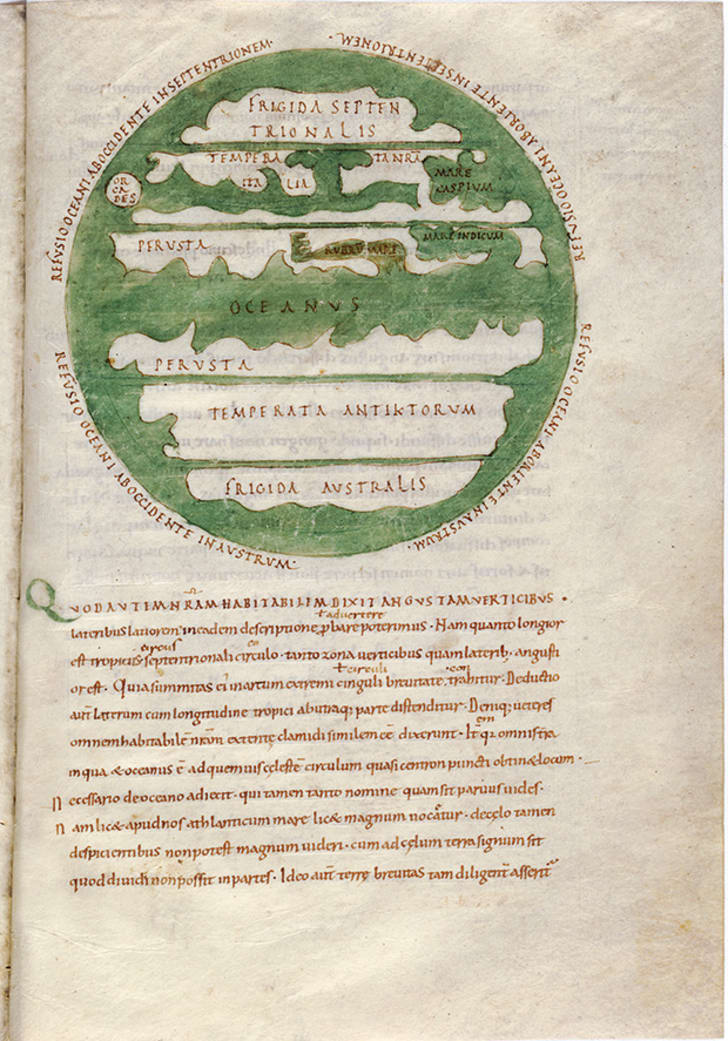 REFUSIO OCEANI AB OCCIDENTE IN SEPTENTRIONEM·
REFUSIO OCEANI AB ORIENTE IN SEPTENTRIONEM·
FRIGIDA SEPTEN
TRIONALIS
TEMPERA TA NRĀ
ITA LIA
MARE
CASPIUM
OR
CA
DES
PERUSTA
RUBRU MARE
MARE INDICUM
OCEANUS
PERUSTA
TEMPERATA ANTIKTORUM
FRIGIDA AUSTRALIS
REFUSIO OCEANI AB OCCIDENTE IN AUSTRUM·
REFUSIO OCEANI AB ORIENTE IN AUSTRUM·
QUOD AUTEM NRAM HABITABILEM DIXIT ANGUSTAM VERTICIBUS·
ł advertere
lateribus latiorem in eadem descriptione pbare poterimus· Nam quanto longior
circus
est tropicus septentrionali circulo· tanto zona verticibus quam laterib; angusti
ł circuli
or est· Quia summitas ei in artum extremi cinguli brevitate trahitur· Deductio
aūt laterum cum longitudine tropici ab utraq; parte distenditur· Deniq; veteres
omnem habitabilē nram extentę clamidi similem eē dixerunt· omnis tra
in qua & oceanus ē ad quemvis cęlestē circulum quasi centron puncti obtin& locum·
necessario de oceano adiecit· qui tamen tanto nomine quam sit parvus vides·
nam lic& apud nos athlanticum mare lic& magnum vocetur· de cęlo tamen
despicientibus non potest magnum videri· cum ad cęlum terra signum sit
quod dividi non possit in partes· Ideo aūt terrę brevitas tam diligent asserit